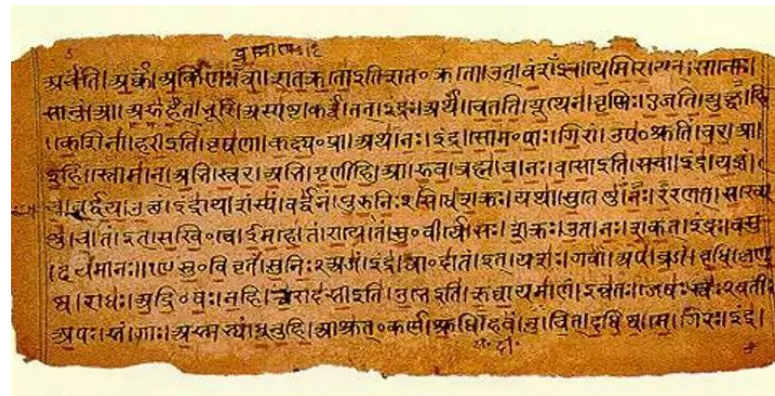 अर्चंति।अर्कं।अर्किणः।शतक्रतोइतिशत०क्रतो।उत्।वंशंऽइव।येमिरे।यत्।सानोः।
सानुं।आ।अरुहत्।भूरि।अस्पष्ट।कर्त्वं।तत्।इंद्रः।अर्थं।चेतति।यूथेन।वृष्णिः।एजति।युक्ष्व।हि
।केशिना।हरीइति।वृषणा।कक्ष्य०प्रा।अथ।नः।इंद्र।सोम०पाः।गिरां।उप०श्रुतिं।चर।आ
इहि।स्तोमान्।अभि।स्वर।अभि।गृणीहि।आ।रुव।ब्रह्म।च।नः।वसोइति।सचा।इंद्र।यज्ञं।
च।वर्द्धय।उक्थं।इंद्राय।शंस्यं।वर्द्धनं।पुरुनिः२सिधे।शक्रः।यथा।सुतेषु।नः।ररणत्।सख्ये
षु।च।तं।इत्।सखि०त्वे।ईमहे।तं।राये।तं।सु०वीर्ये।सः।शक्रः।उत।नः।शकत्।इंद्रः।वसु
।दयमानः।१९।सु०विवृतं।सुनिः२अजं।इंद्र।त्वा०दातं।इत्।यशः।गवां।अप।व्रजं।वृधि।कृणु
ष्व।राधः।अद्रि०वः।नहि।त्वा।रोदसीइति।उभेइति।ऋघायमाणं।इन्वतः।जेषः।स्वः२वतीः
अपः।सं।गाः।अस्मभ्यं।धूनुहि।आश्रुत्०कर्ण।श्रुधि।हवं।नु।चित्।दधिष्व।मे।गिरः।इंद्र।